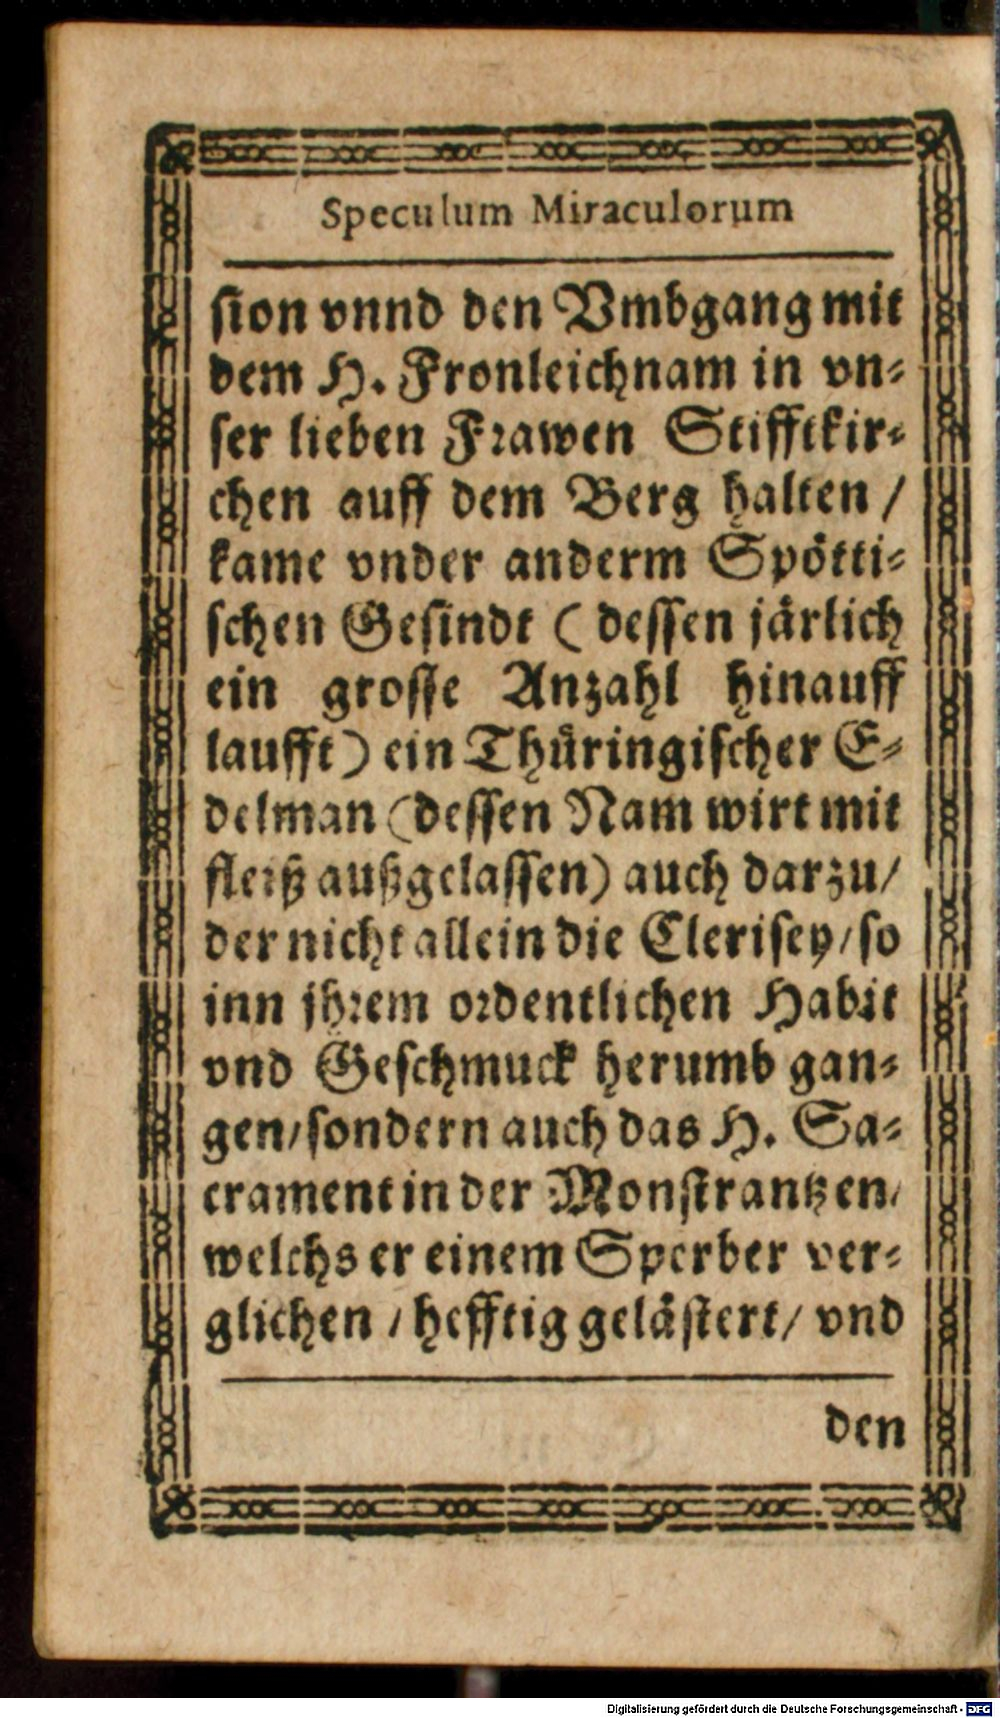 Speculum Miraculorum
sion vnnd den Vmbgang mit
dem H. Fronleichnam in vn-
ser lieben Frawen Stifftkir-
chen auff dem Berg halten /
kame vnder anderm Spötti-
schen Gesindt ( dessen järlich
ein grosse Anzahl hinauff
laufft) ein Thüringischer E-
delman (dessen Nam wirt mit
fleiß außgelassen) auch darzu/
der nicht allein die Clerisey/so
inn jhrem ordentlichen Habit
vnd Geschmuck herumb gan-
gen/sondern auch das H. Sa-
crament in der Monstrantzen/
welchs er einem Sperber ver-
glichen / hefftig gelästert/ vnd
den
Digitalisierung gefördert durch die Deutsche Forschungsgemeinschaft - DFG